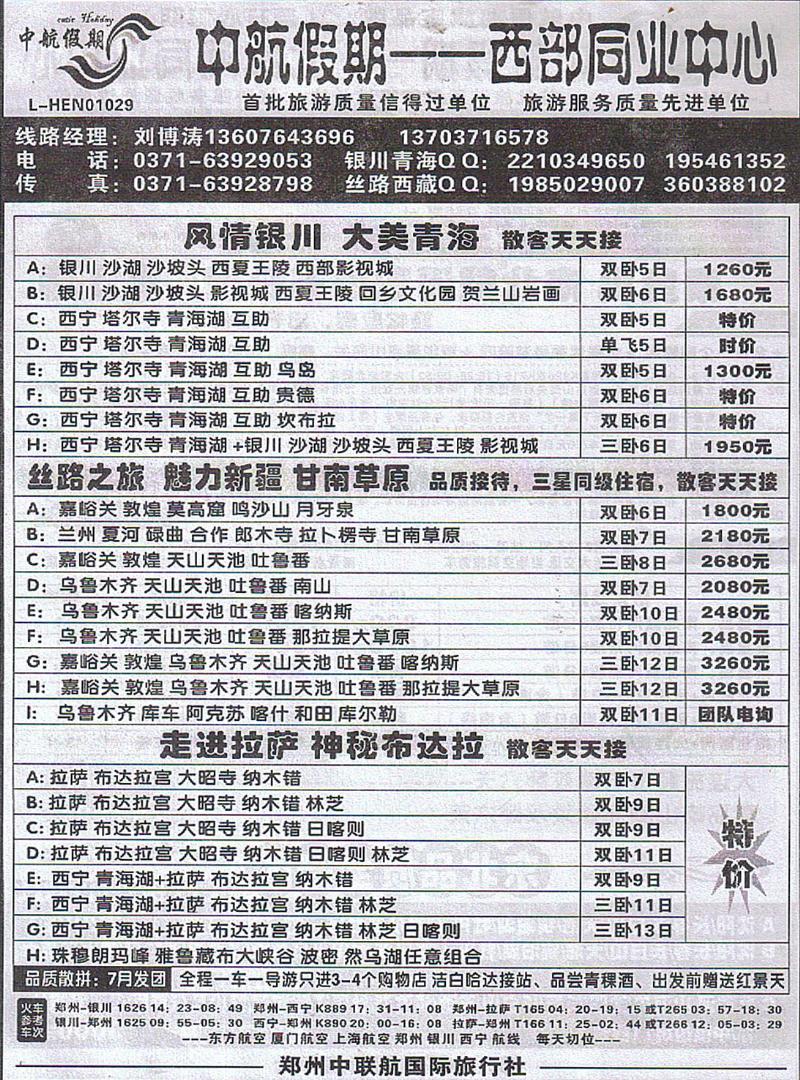 中航假期
L-HEN01029
中航假期——西部同业中心
首批旅游质量信得过单位 旅游服务质量先进单位
线路经理：刘博涛13607643696 13703716578
电 话：0371-63929053 银川青海QQ：2210349650 195461352
传 真：0371-63928798 丝路西藏QQ：1985029007 360388102
风情银川 大美青海 散客天天接
A：银川 沙湖 沙坡头 西夏王陵 西部影视城 双卧5日 1260元
B：银川 沙湖 沙坡头 影视城 西夏王陵 回乡文化园 贺兰山岩画 双卧6日 1680元
C：西宁 塔尔寺 青海湖 互助 双卧5日 特价
D：西宁 塔尔寺 青海湖 互助 单飞5日 时价
E：西宁 塔尔寺 青海湖 互助 鸟岛 双卧5日 1300元
F：西宁 塔尔寺 青海湖 互助 贵德 双卧6日 特价
G：西宁 塔尔寺 青海湖 互助 坎布拉 双卧6日 特价
H：西宁 塔尔寺 青海湖+银川 沙湖 沙坡头 西夏王陵 影视城 三卧6日 1950元
丝路之旅 魅力新疆 甘南草原 品质接待，三星同级住宿，散客天天接
A：嘉峪关 敦煌 莫高窟 鸣沙山 月牙泉 双卧6日 1800元
B：兰州 夏河 碌曲 合作 郎木寺 拉卜楞寺 甘南草原 双卧7日 2180元
C：嘉峪关 敦煌 天山天池 吐鲁番 三卧8日 2680元
D：乌鲁木齐 天山天池 吐鲁番 南山 双卧7日 2080元
E：乌鲁木齐 天山天池 吐鲁番 喀纳斯 双卧10日 2480元
F：乌鲁木齐 天山天池 吐鲁番 那拉提大草原 双卧10日 2480元
G：嘉峪关 敦煌 乌鲁木齐 天山天池 吐鲁番 喀纳斯 三卧12日 3260元
H：嘉峪关 敦煌 乌鲁木齐 天山天池 吐鲁番 那拉提大草原 三卧12日 3260元
I：乌鲁木齐 库车 阿克苏 喀什 和田 库尔勒 双卧11日 团队电询
走进拉萨 神秘布达拉 散客天天接
A：拉萨 布达拉宫 大昭寺 纳木错 双卧7日
B：拉萨 布达拉宫 大昭寺 纳木错 林芝 双卧9日
C：拉萨 布达拉宫 大昭寺 纳木错 日喀则 双卧9日
D：拉萨 布达拉宫 大昭寺 纳木错 日喀则 林芝 双卧11日
E：西宁 青海湖+拉萨 布达拉宫 纳木错 双卧9日
F：西宁 青海湖+拉萨 布达拉宫 纳木错 林芝 三卧11日
G：西宁 青海湖+拉萨 布达拉宫 纳木错 林芝 日喀则 三卧13日
特价
H：珠穆朗玛峰 雅鲁藏布大峡谷 波密 然乌湖任意组合
品质散拼：7月发团 全程一车一导游只进3-4个购物店 洁白哈达接站、品尝青稞酒、出发前赠送红景天
火车参考车次
郑州-银川 1626 14：23-08：49 郑州-西宁 K889 17：31-11：08 郑州-拉萨 T165 04：20-19：15 或T265 03：57-18：30
银川-郑州 1625 09：55-05：30 西宁-郑州 K890 20：00-16：08 拉萨-郑州 T166 11：25-02：44 或T266 12：05-03：29
---东方航空 厦门航空 上海航空 郑州 银川 西宁 航线 每天切位---
郑州中联航国际旅行社